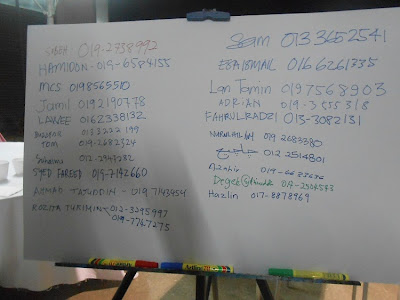 SABER 019-2738992
HAMIDON - 019-6584155
MCS 0198565510
Jamil 0192190778
LAWEE 0162338132
013 3222 199
TOM 019-2682324
012-2943282
SYED FAREED 019-7142660
AHMAD TAJUDDIN - 019 7143954
ROZITA TUKIMIN 012-3295997
019-7767275
Sam 013 3652541
EBAISMAIL 016 6261335
Lan Tamin 0197568903
ADRIAN 019-3555318
FAHRUL RADZI 013-3082131
019 2683380
012 2514801
Azahir
Deget
Hazlin 017-8878969